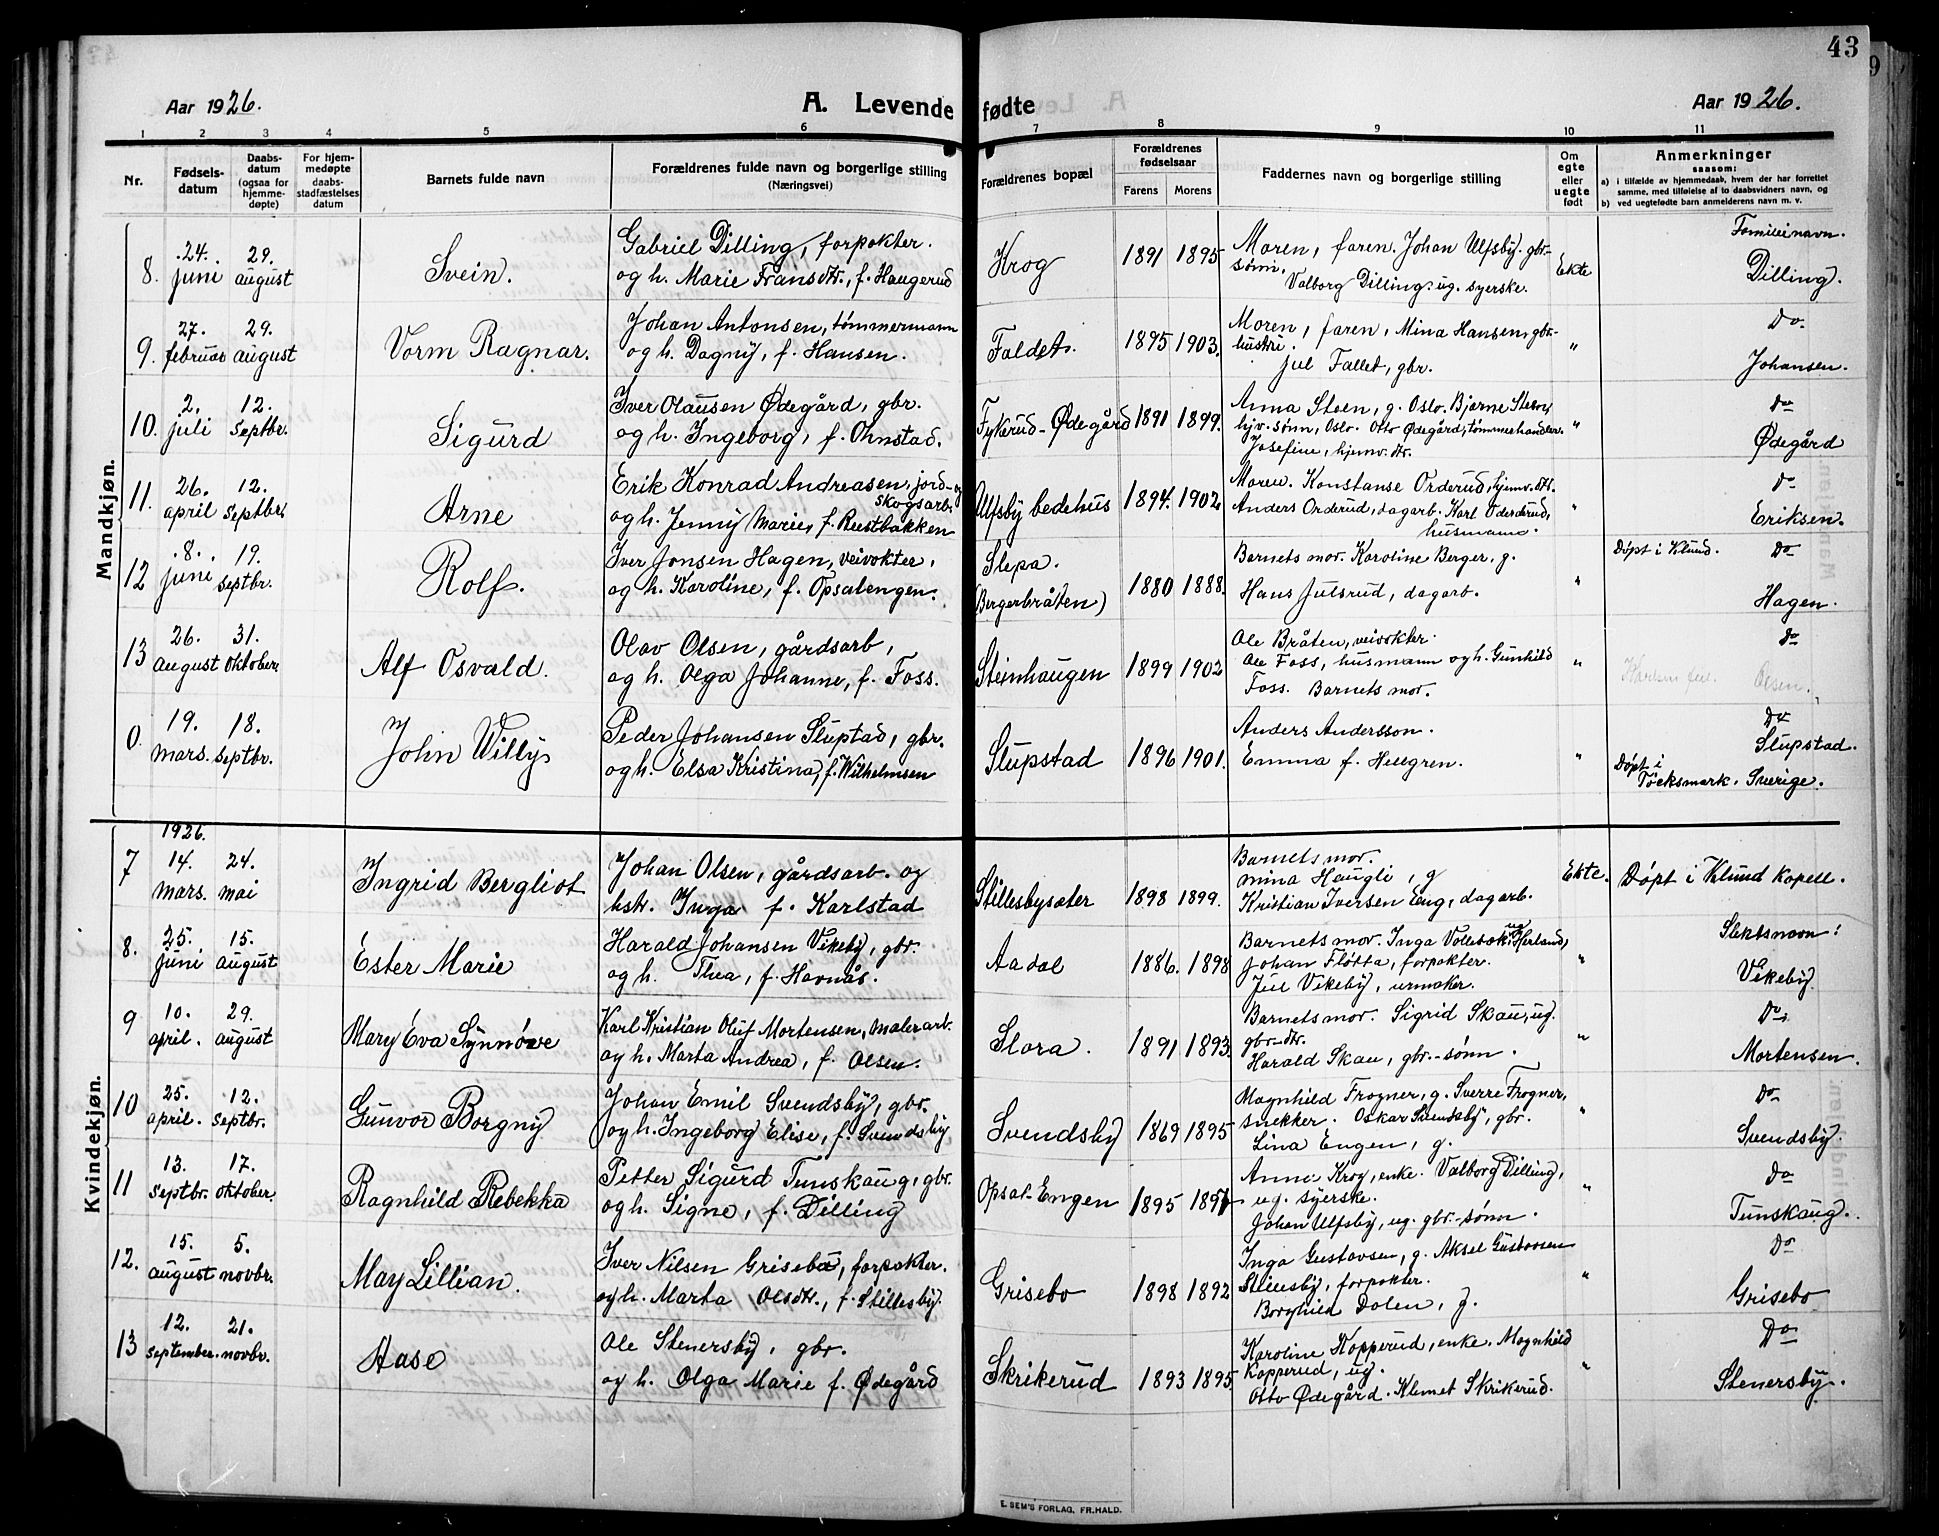 43
Aar 1926.
A. Levende fødte
Aar 1926.
1 2 3 4 5 6 7 8 9 10 11
Nr.
Fødsels-
datum
Daabs-
datum
(ogsaa for
hjemme-
døpte)
For hjem-
medøpte
daabs-
stadfæstelses
datum
Barnets fulde navn
Forældrenes fulde navn og borgerlige stilling
(Næringsvei)
Forældrenes bopæl
Forældrenes
fødselsaar
Farens Morens
Faddernes navn og borgerlige stilling
Om
egte
eller
uegte
født
Anmerkninger
saasom:
a) i tilfælde av hjemmedaab, hvem der har forrettet
samme, med tilføielse af to daabsvidners navn, og
b) ved uegtefødte barn anmelderens navn m. v.
Mandkjøn.
8. 24. juni 29. august
Svein.
Gabriel Dilling, forpakter.
og h. Marie Fransdtr., f. Haugerud
Krog
1891 1895
Moren, faren. Johan Ulfsby. gbr-
sønn.
Valborg Dilling. ug. syerske.
Ekte
Familienavn.
Dilling.
9. 27. februar 29. august
Vorm Ragnar.
Johan Antonsen, tømmermann
og h. Dagny, f. Hansen.
Faldet.
1895 1903.
Moren, faren, Mina Hansen, gbr-
hustru.
Jul Fallet, gbr.
"
Do
Johansen.
10. 2. juli 12. septbr.
Sigurd
Iver Olausen Ødegård, gbr.
og h. Ingeborg, f. Ohnstad.
Fykerud-Ødegård
1891 1899.
Anna Steen, g. Oslo. Bjarne Steen,
hjv. sønn, Oslo. Otto Ødegård, tømmerhandler.
Josefine, hjemv. dtr.
"
do
Ødegård
11. 26. april 12. septbr.
Arne
Erik Konrad Andreasen, jord- og
skogsarb.
og h. Jenny Marie, f. Rustbakken
Ulfsby bedehus
1894. 1902
Moren. Konstanse Orderud, hjemv. dtr.
Anders Orderud, dagarb. Karl Oderderud,
husmann.
"
do
Eriksen.
12 8. juni 19. septbr.
Rolf.
Iver Jonsen Hagen, veivokter,
og h. Karoline, f. Opsalengen.
Slepa.
(Bergerbråten)
1880 1888.
Barnets mor. Karoline Berger, g.
Hans Julsrud, dagarb.
"
Døpt i Klund. Do
Hagen.
13 26. august 31. oktober
Alf Osvald.
Olav Olsen, gårdsarb,
og h. Olga Johanne, f. Foss.
Steinhaugen
1899 1902
Ole Bråten, veivokter.
Ole Foss, husmann og h. Gunhild
Foss. Barnets mor.
"
do
Olsen.
0 19. mars. 18. septbr.
John Willy
Peder Johansen Slupstad, gbr.
og h. Elsa Kristina, f. Wilhelmsen
Slupstad
1896 1901.
Anders Andersson.
Emma f. Hellgren.
"
Do
Slupstad.
Døpt i
Töcksmark. Sverige.
Kvindekjøn.
1926.
7 14. mars. 24. mai
Ingrid Bergliot
Johan Olsen, gårdsarb. og
hstr. Inga f. Karlstad
Stillesbysæter
1898 1899.
Barnets mor.
Mina Haugli, g
Kristian Iversen Eng, dagarb.
Ekte.
Døpt i Klund kapell.
8. 25. juni 15. august
Ester Marie
Harald Johansen Vikeby, gbr.
og h. Thea, f. Havnås.
Aadal
1886. 1898
Barnets mor. Inga Vollebæk, ug Herland,
Johan Fløtta, forpakter.
Jul Vikeby, urmaker.
"
Slektsnavn:
Vikeby
9 10. april. 29. august
Mary Eva Synnøve
Karl Kristian Oluf Mortensen, malerarb.
og h. Marta Andrea, f. Olsen.
Slora.
1891 1893
Barnets mor. Sigrid Skau, ug.
gbr-dtr.
Harald Skau, gbr.-sønn.
"
Do
Mortensen.
10 25. april. 12. septbr.
Gunvor Borgny
Johan Emil Svendsby, gbr.
og h. Ingeborg Elise, f. Svendsby
Svendsby
1869 1895
Magnhild Frogner, g. Sverre Frogner,
snekker. Oskar Svendsby, gbr.
Lina Engen, g.
"
Do
Svendsby.
11 13. septbr. 17. oktober.
Ragnhild Rebekka
Petter Sigurd Tunskaug, gbr.
og h. Signe, f. Dilling
Opsal-Engen
1895
Anne Krog, enke. Valborg Dilling,
ug. syerske.
Johan Ulfsby, ug. gbr.-sønn.
"
Do
Tunskaug.
12. 15. august 5. novbr.
May Lillian.
Iver Nilsen Grisebu, forpakter.
og h. Marta Olsdtr., f. Stillesby.
Grisebo
1898 1892
Inga Gustavsen, g. Aksel Gustavsen
Stillesby, forpakter.
Borghild Dalen, g.
"
Do
Grisebo
13 12. september. 21. novbr.
Aase
Ole Stenersby, gbr.
og h. Olga Marie f. Ødegård
Skrikerud
1893 1895
Karoline Kopperud, enke. Magnhild
Kopperud, ug.
Otto Ødegård. Klemet Skrikerud.
"
Do
Stenersby.
E. SEM'S FORLAG, FR.HALD.